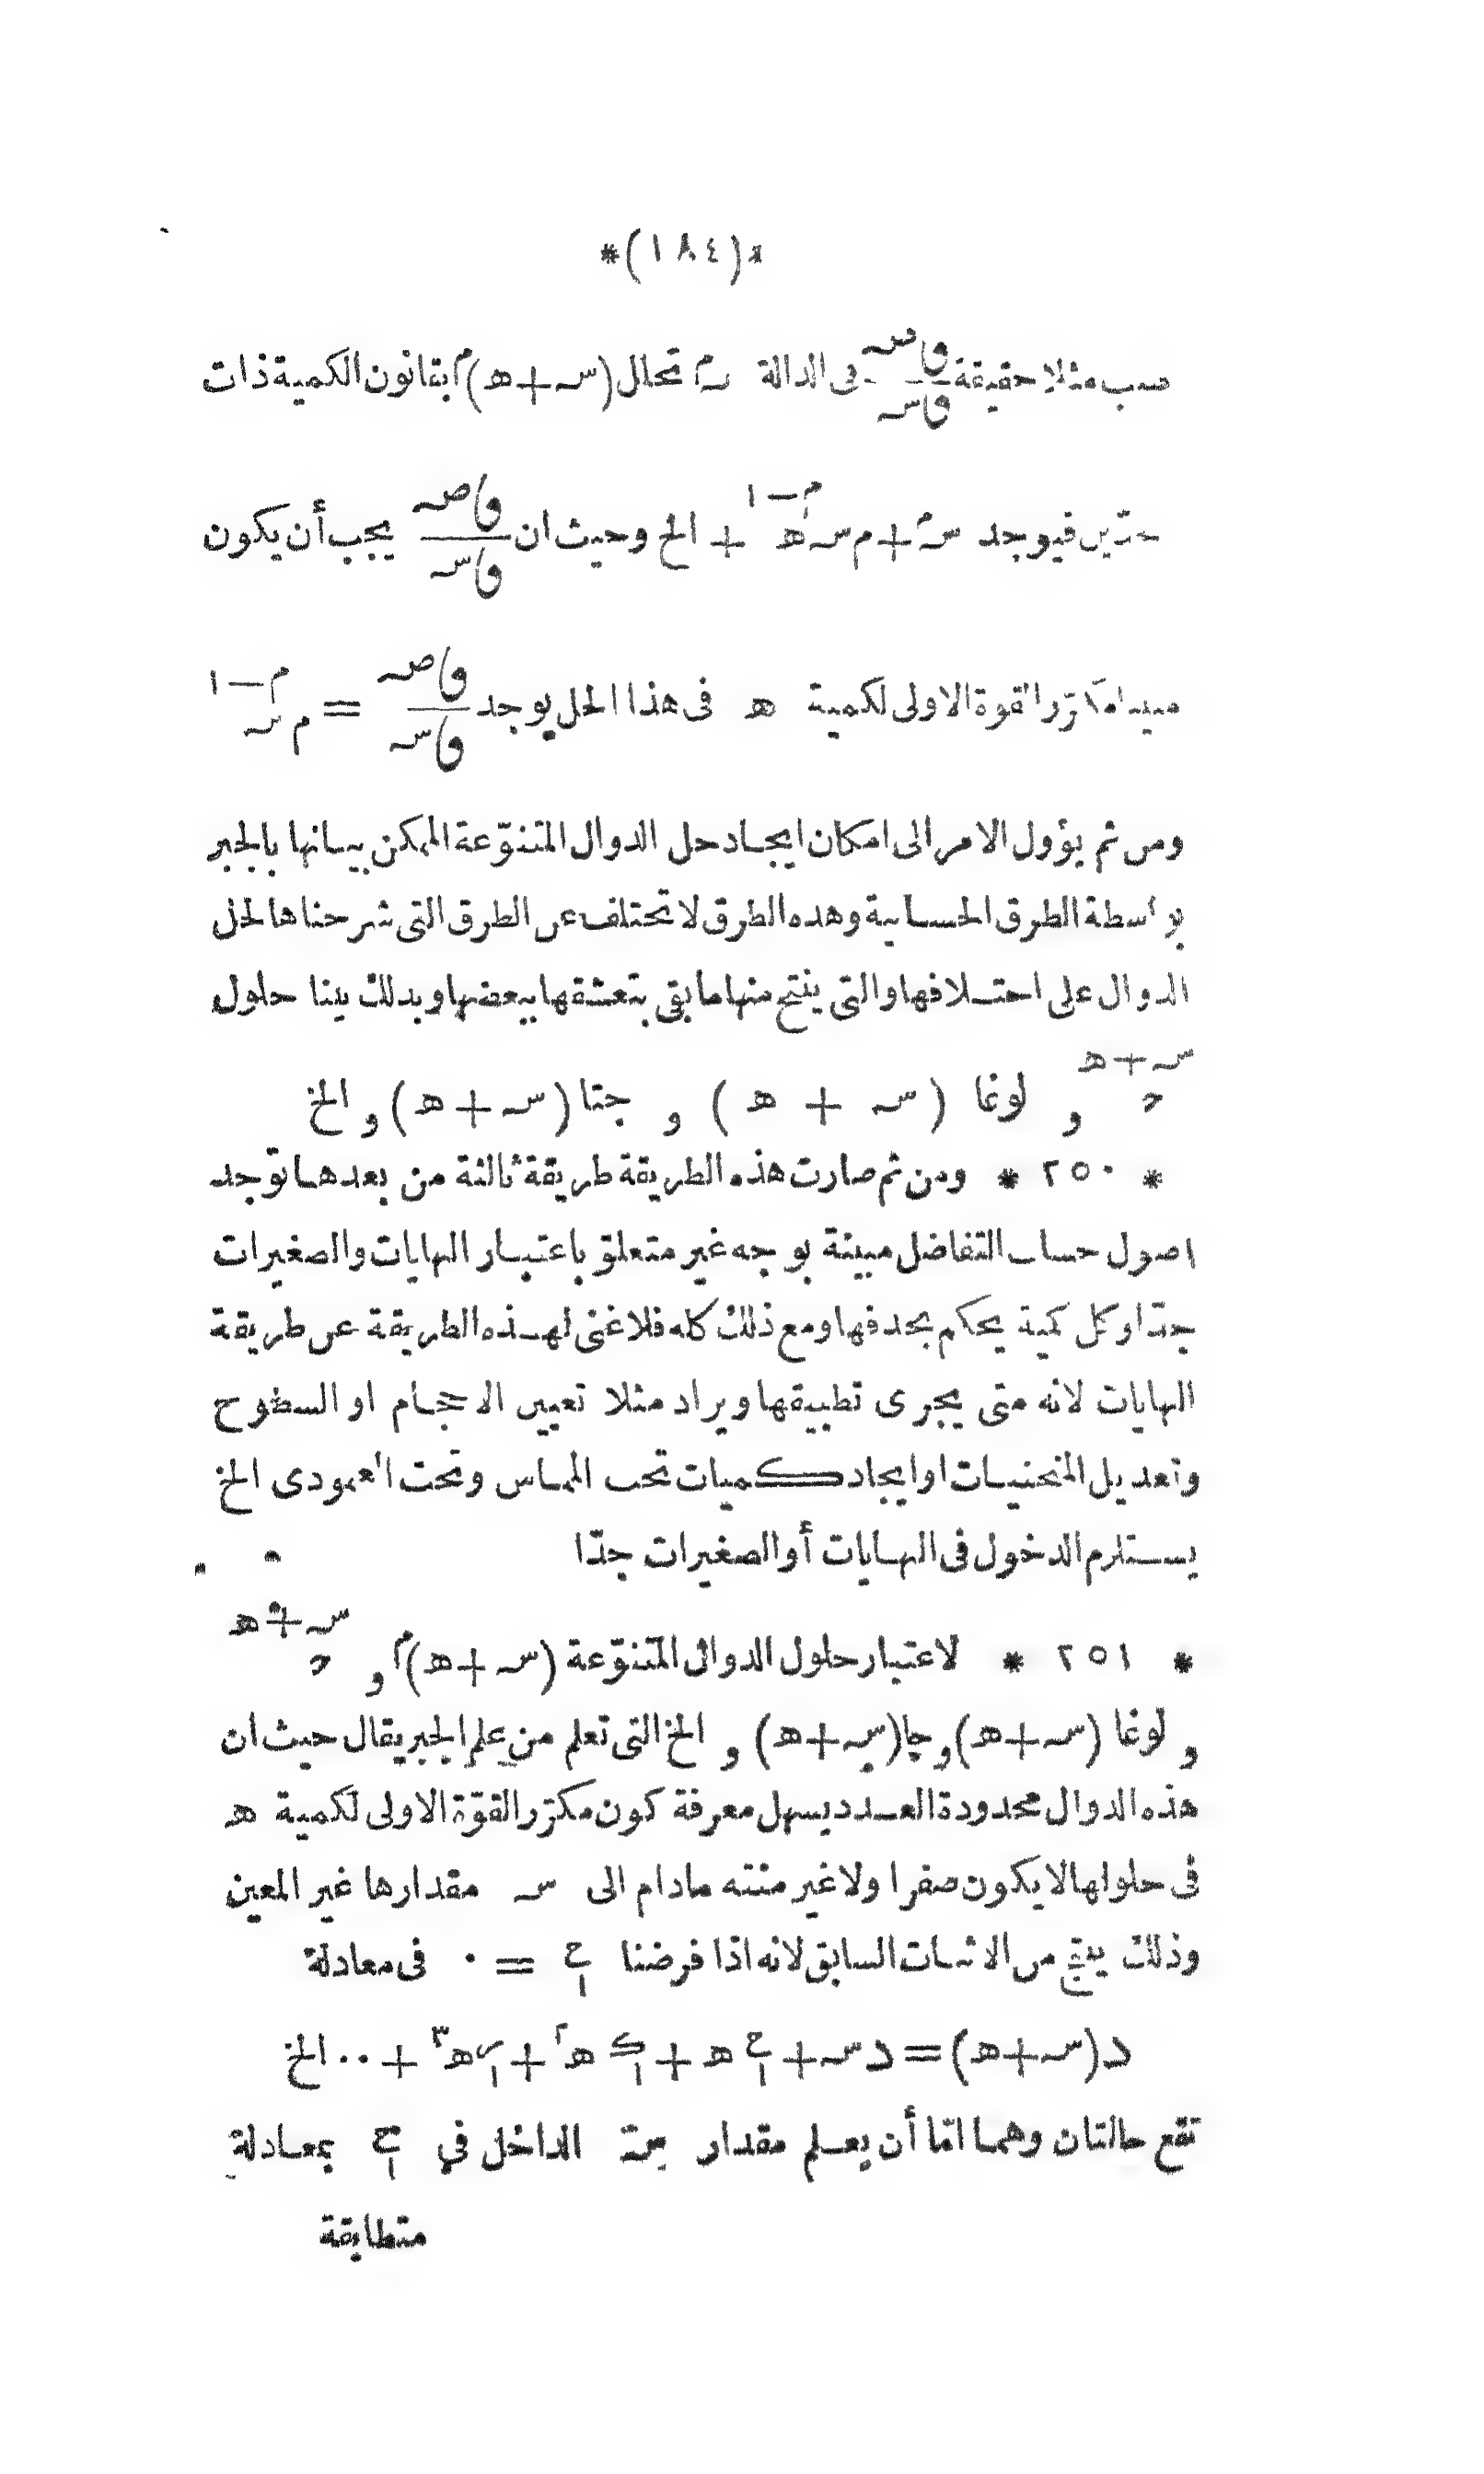 *(١٨٤)*
مثلا حقيقة فاصہ/فاسہ فى الدالة سہ^م تحلل (سہ+ھ)^م بقانون الكمية ذات
حدّين فيوجد سہ^م + م سہ^(م−١) ھ + الخ وحيث ان فاصہ/فاسہ يجب أن يكون
مكرّر القوة الاولى لكمية ھ فى هذا الحل يوجد فاصہ/فاسہ = م سہ^(م−١)
ومن ثم يؤول الامر الى امكان ايجاد حل الدوال المتنوّعة الممكن بيانها بالجبر
بواسطة الطرق الحسابية وهذه الطرق لا تختلف عن الطرق التى شرحناها لحل
الدوال على اختلافها والتى ينتج منها ما بقى بتعشقها ببعضها وبذلك بينا حلول
ح^(سہ+ھ) و لوغا (سہ + ھ) و جتا (سہ + ھ) و الخ
* ٢٥٠ * ومن ثم صارت هذه الطريقة طريقة ثالثة من بعدها توجد
اصول حساب التفاضل مبينة بوجه غير متعلق باعتبار النهايات والصغيرات
جدّا وكل كمية يحكم بحذفها ومع ذلك كله فلا غنى لهذه الطريقة عن طريقة
النهايات لانه متى يجرى تطبيقها ويراد مثلا تعيين الاحجام او السطوح
وتعديل المنحنيات او ايجاد كميات تحت المماس وتحت العمودى الخ
يستلزم الدخول فى النهايات أو الصغيرات جدّا
* ٢٥١ * لاعتبار حلول الدوال المتنوّعة (سہ+ھ)^م و ح^(سہ+ھ)
و لوغا (سہ+ھ) و جا (سہ+ھ) و الخ التى تعلم من علم الجبر يقال حيث ان
هذه الدوال محدودة العدد يسهل معرفة كون مكرّر القوّة الاولى لكمية ھ
فى حلولها لا يكون صفرا ولا غير منته مادام الى سہ مقدارها غير المعين
وذلك ينتج من الاثبات السابق لانه اذا فرضنا ح١ = ٠ فى معادلة
د (سہ+ھ) = د سہ + ح١ ھ + ك١ ھ^٢ + ل١ ھ^٣ + ٠٠ الخ
تقع حالتان وهما امّا أن يعلم مقدار سہ الداخل في ح١ بمعادلة
متطابقة